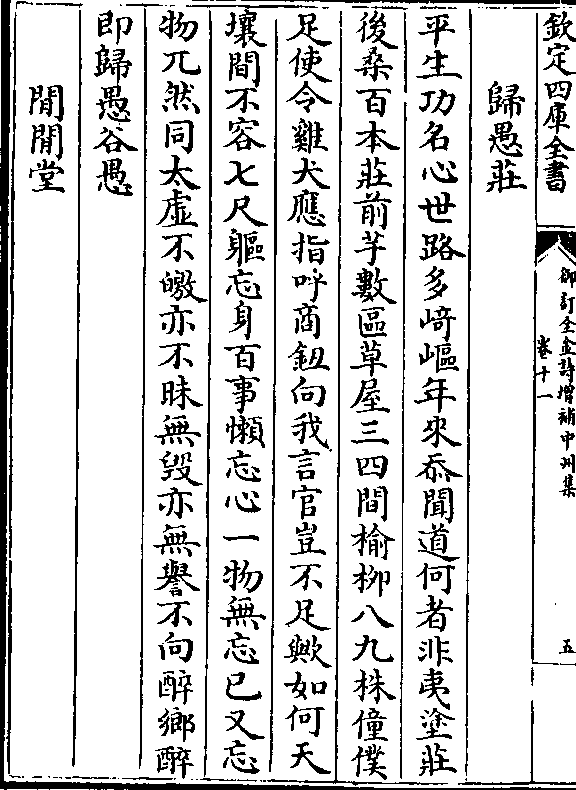 欽定四庫全書
御訂全金詩增補中州集
卷十一
五
歸愚莊
平生功名心世路多﨑嶇年來忝聞道何者非夷塗莊
後桑百本莊前芋數區草屋三四間榆栁八九株僮僕
足使令雞犬應指呼商鈕向我言官豈不足歟如何天
壤間不容七尺軀忘身百事懶忘心一物無忘已又忘
物兀然同太虛不皦亦不昧無毀亦無譽不向醉鄉醉
即歸愚谷愚
閒閒堂